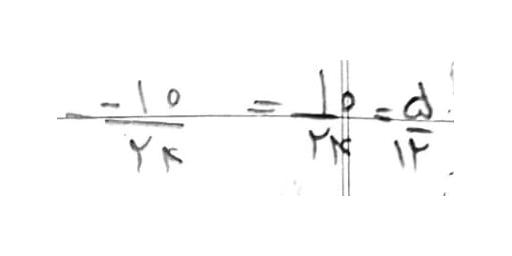 - -۱۰/۲۴ = ۱۰/۲۴ = ۵/۱۲